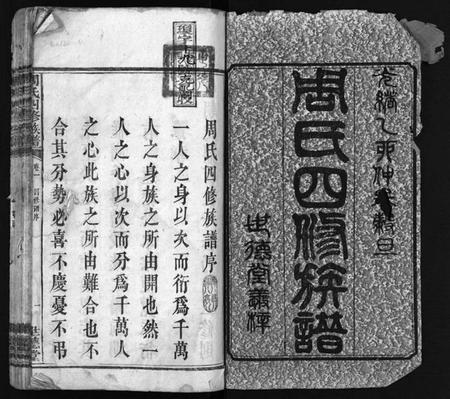 光緒乙卯仲春穀旦
周氏四修族譜
世德堂彙梓
周氏四修族譜序
一人之身以次而衍爲千萬
人之身族之所由開也然一
人之心以次而分爲千萬人
之心此族之所由難合也不
合其分勢必喜不慶憂不弔
周氏四修族譜
卷一
一
世德堂